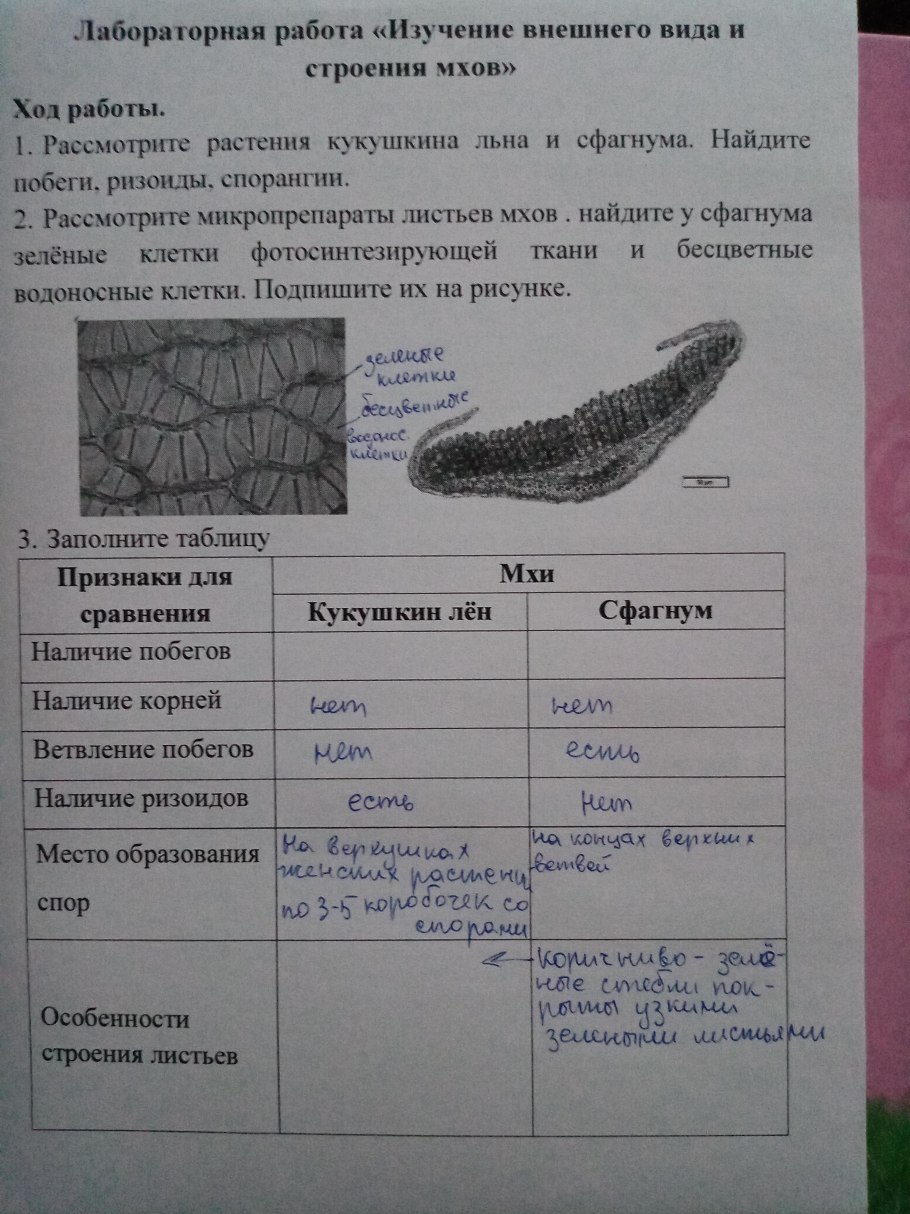 Лабораторная работа «Изучение внешнего вида и
строения мхов»
Ход работы.
1. Рассмотрите растения кукушкина льна и сфагнума. Найдите
побеги, ризоиды, спорангии.
2. Рассмотрите микропрепараты листьев мхов . найдите у сфагнума
зелёные клетки фотосинтезирующей ткани и бесцветные
водоносные клетки. Подпишите их на рисунке.
зеленые
клетки
бесцветные
клетки
3. Заполните таблицу
Признаки для
сравнения
Мхи
Кукушкин лён
Сфагнум
Наличие побегов
Наличие корней
нет
нет
Ветвление побегов
нет
есть
Наличие ризоидов
есть
нет
Место образования
спор
На верхушках
женских растени
по 3-5 коробочек со
спорами
на концах верхних
ветвей
Особенности
строения листьев
коричниво - зелё-
ные стебли пок-
рыты узкими
зелеными листьями